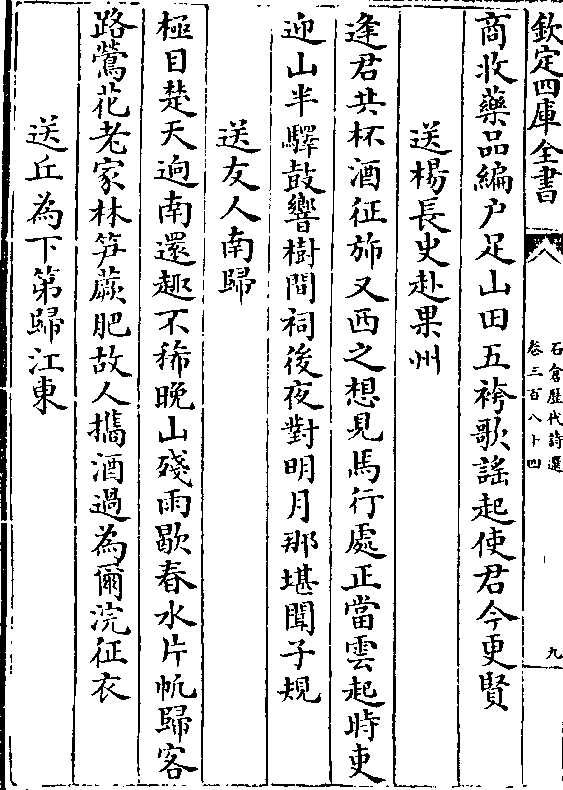 欽定四庫全書
石倉歷代詩選
卷三百八十四
九
商收藥品編户足山田五袴歌謡起使君今更賢
送楊長史赴果州
逢君共杯酒征斾又西之想見馬行處正當雲起時吏
迎山半驛鼓響樹間祠後夜對明月那堪聞子規
送友人南歸
極目楚天逈南還趣不稀晚山殘雨歇春水片帆歸客
路鶯花老家林笋蕨肥故人攜酒過為爾浣征衣
送丘為下第歸江東